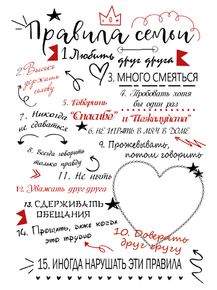 Правила семьи
1. Любить друг друга
2. Высоко
держать
голову
3. МНОГО СМЕЯТЬСЯ
4. Пробовать хотя
бы один раз
5. Говорить
"Спасибо" и "Пожалуйста"
6. НЕ ИГРАТЬ В МЯЧ В ДОМЕ
7. Никогда
не сдаваться
8. Всегда говорить
только правду
9. Прожевывать,
потом говорить
11. Не ныть
12. Уважать друг друга
13. СДЕРЖИВАТЬ
ОБЕЩАНИЯ
14. Прощать, даже когда
это трудно
10. Доверять
друг другу
15. ИНОГДА НАРУШАТЬ ЭТИ ПРАВИЛА